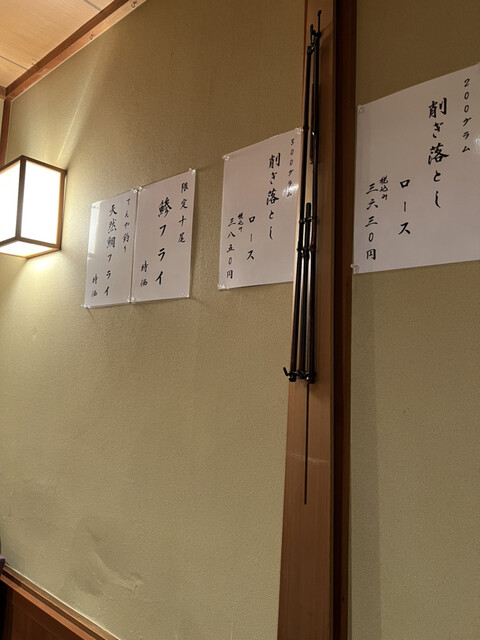 200グラム
削ぎ落とし
ロース
税込み
三六三〇円
300グラム
削ぎ落とし
ロース
税込み
三八五〇円
限定十尾
鯵フライ
時価
てんや釣り
天然鯛フライ
時価